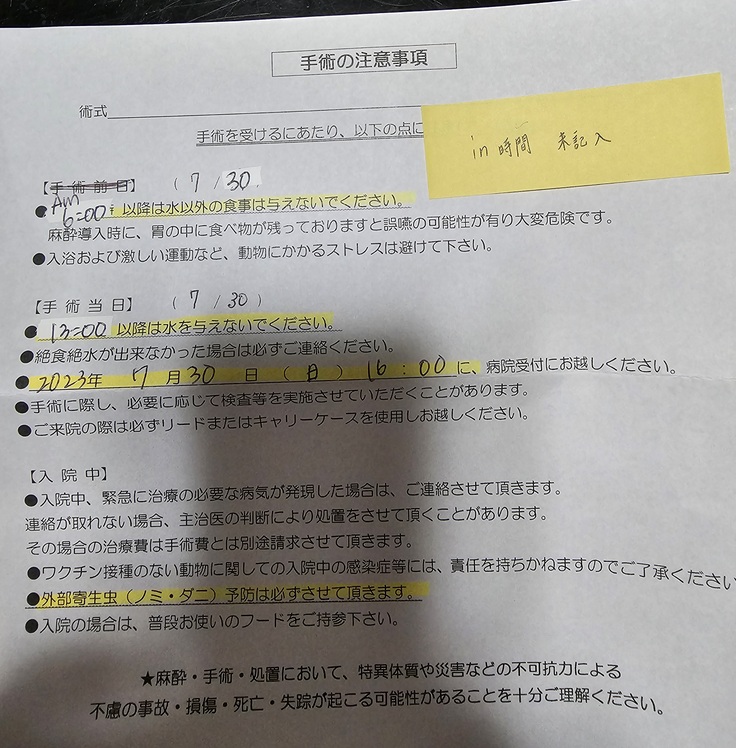 手術の注意事項
術式
手術を受けるにあたり、以下の点に
in 時間 未記入
【手術前日】 ( 7 / 30 )
●Am 6:00 以降は水以外の食事は与えないでください。
麻酔導入時に、胃の中に食べ物が残っておりますと誤嚥の可能性が有り大変危険です。
●入浴および激しい運動など、動物にかかるストレスは避けて下さい。
【手術当日】 ( 7 / 30 )
●13:00 以降は水を与えないでください。
●絶食絶水が出来なかった場合は必ずご連絡ください。
●2023年 7 月 30 日 ( 日 ) 16 : 00 に、病院受付にお越しください。
●手術に際し、必要に応じて検査等を実施させていただくことがあります。
●ご来院の際は必ずリードまたはキャリーケースを使用しお越しください。
【入院中】
●入院中、緊急に治療の必要な病気が発現した場合は、ご連絡させて頂きます。
連絡が取れない場合、主治医の判断により処置をさせて頂くことがあります。
その場合の治療費は手術費とは別途請求させて頂きます。
●ワクチン接種のない動物に関しての入院中の感染症等には、責任を持ちかねますのでご了承ください
●外部寄生虫(ノミ・ダニ)予防は必ずさせて頂きます。
●入院の場合は、普段お使いのフードをご持参下さい。
★麻酔・手術・処置において、特異体質や災害などの不可抗力による
不慮の事故・損傷・死亡・失踪が起こる可能性があることを十分ご理解ください。